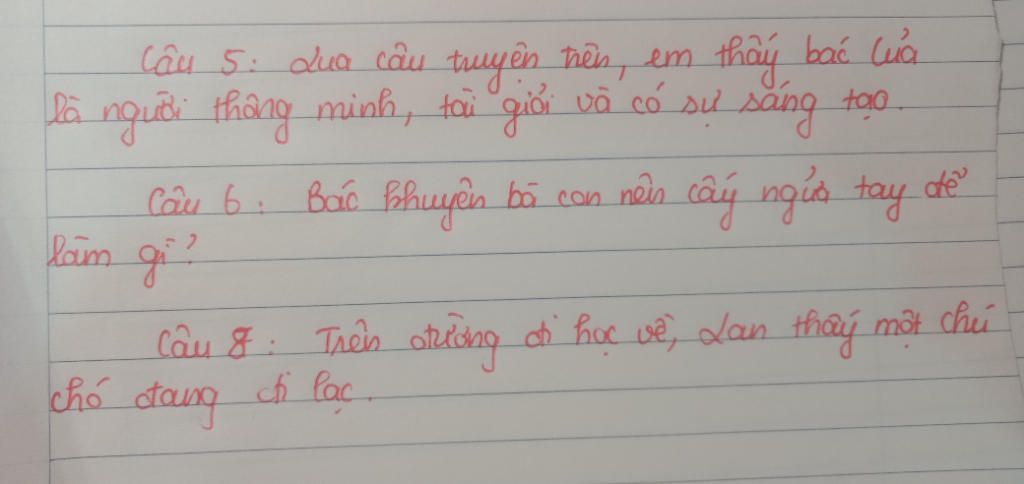 Câu 5: Qua câu truyện trên, em thấy bác Lửa
là người thông minh, tài giỏi và có sự sáng tạo.
Câu 6: Bác khuyên bà con nên cấy ngửa tay để
làm gì?
Câu 8: Trên đường đi học về, Lan thấy một chú
chó đang đi lạc.